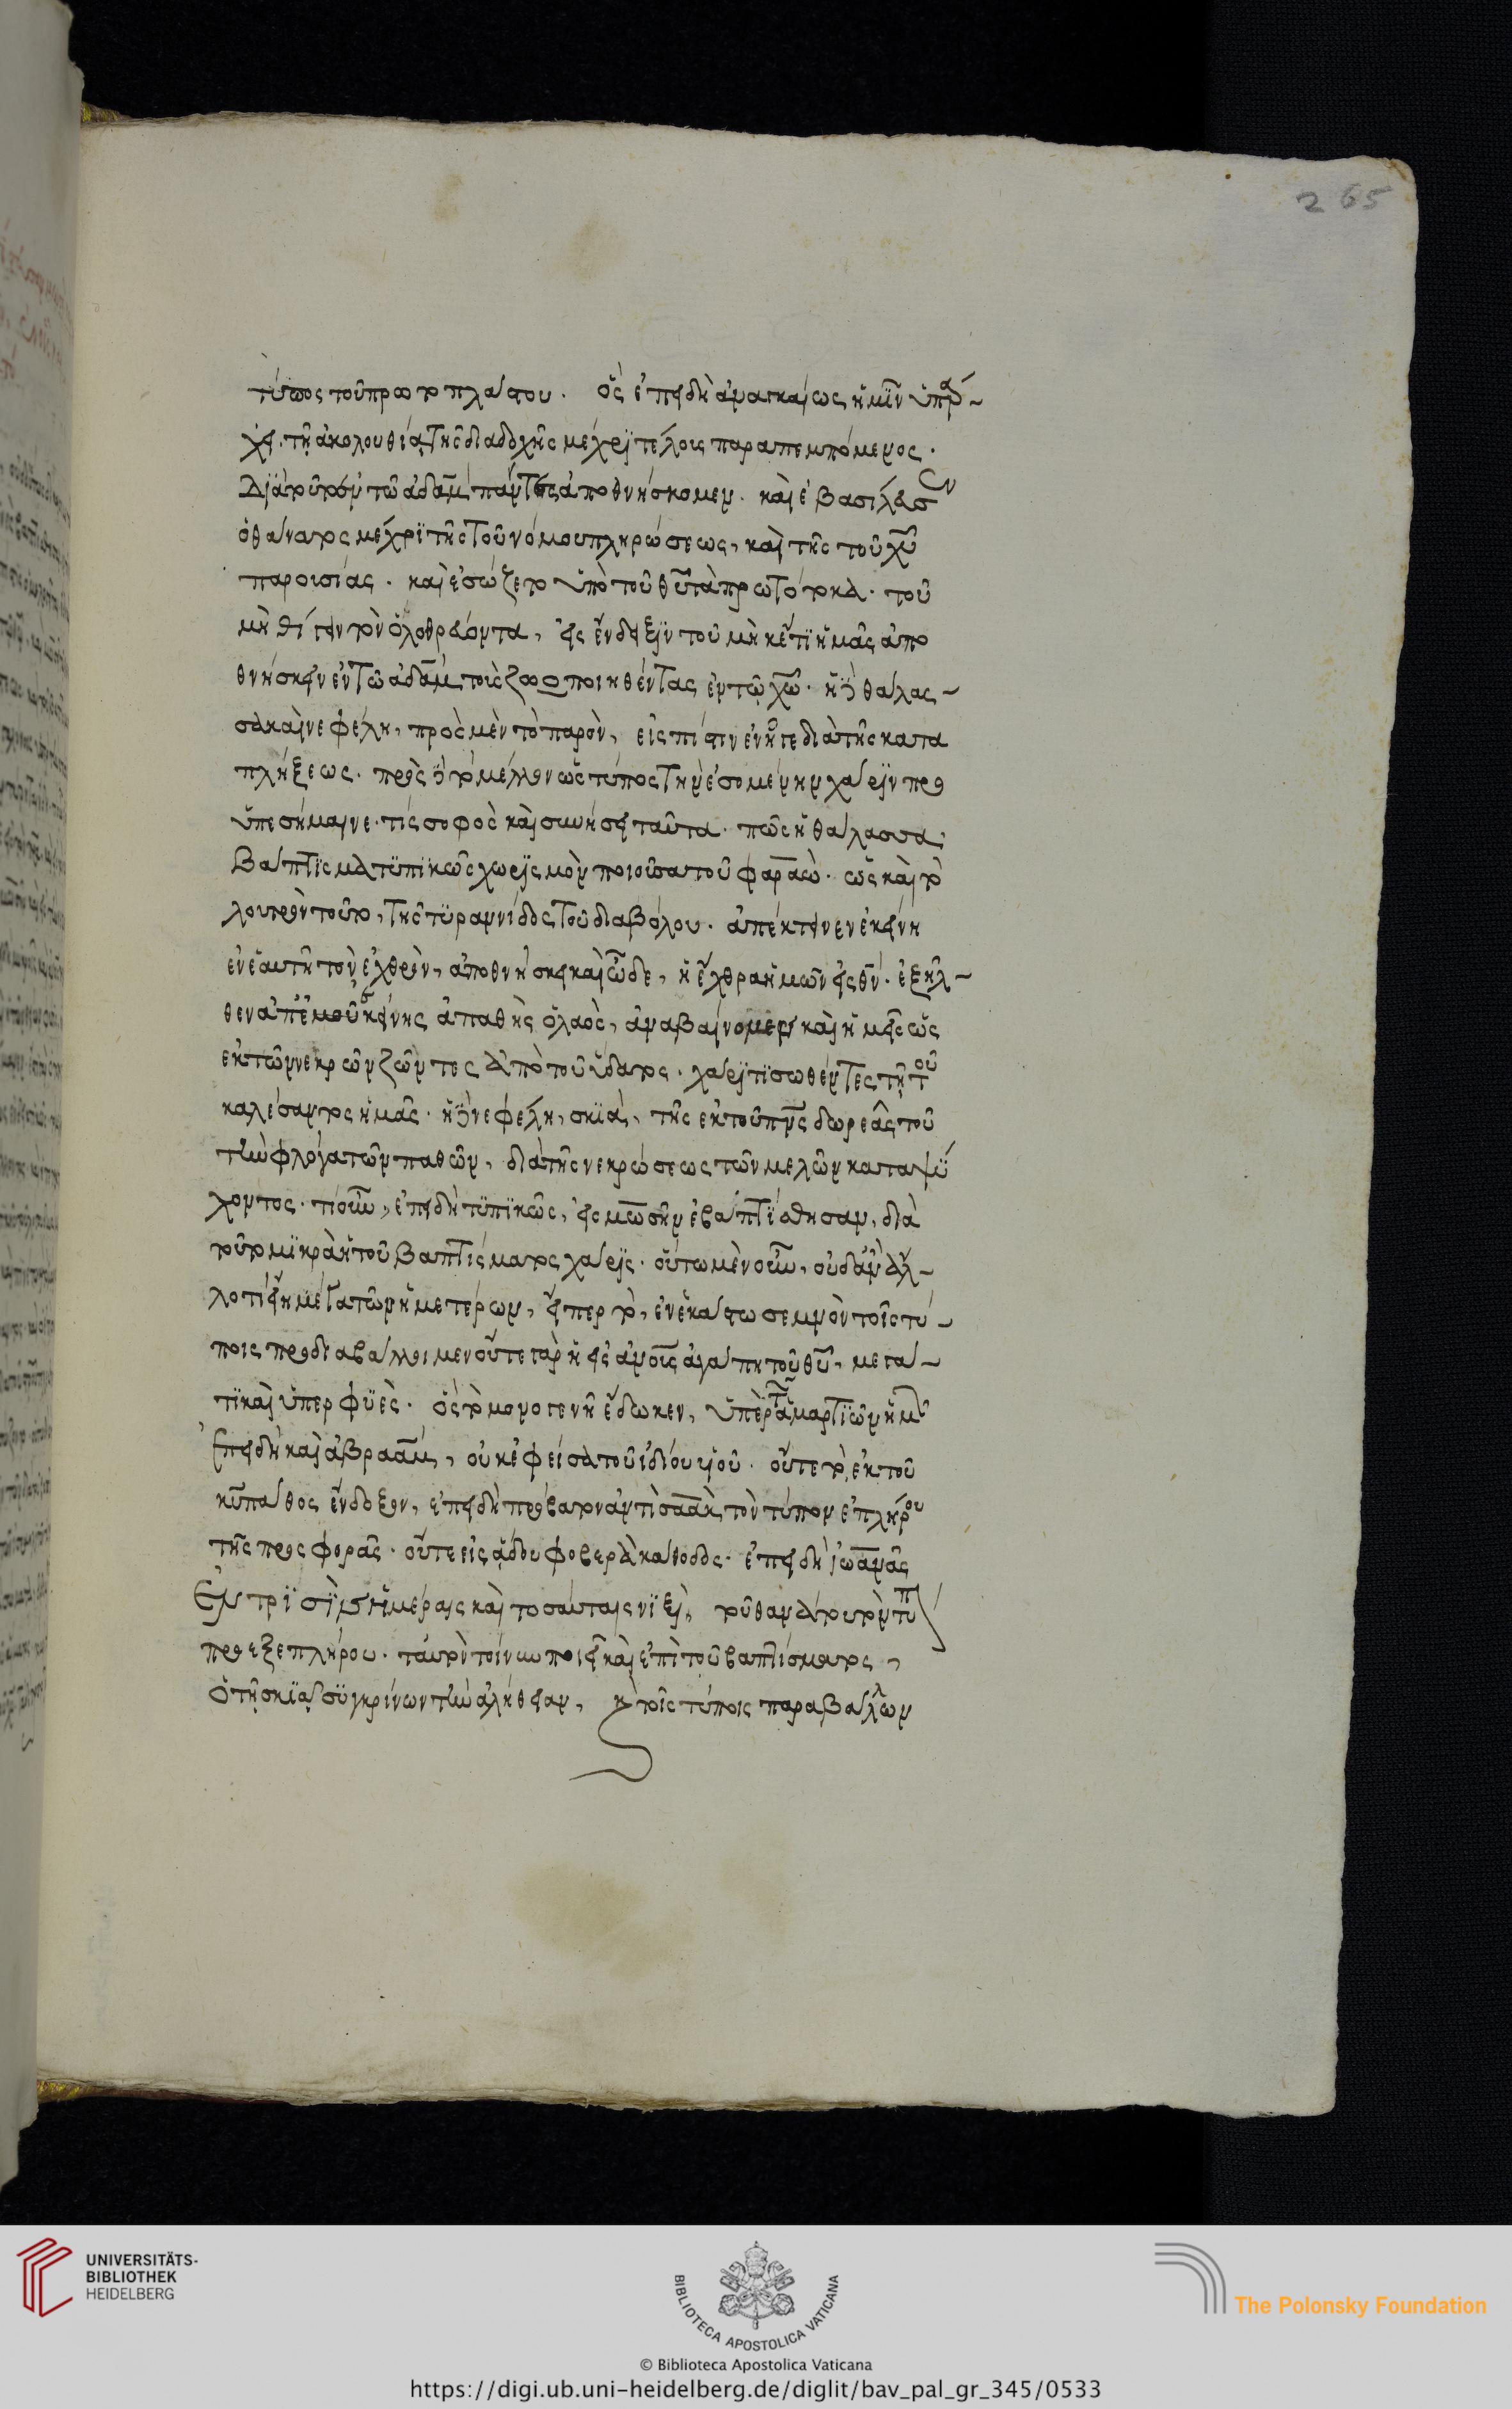 265
τύπος τοῦ πρωτοπλάστου. ὃς ἐπειδὴ ἀναγκαίως ἡμῖν ὑπῆρ-
χε. τῇ ἀκολουθίᾳ τῆς διαδοχῆς μέχρι τέλους παραπεμπόμενος.
Διὰ τοῦτο ἐν τῶ ἀδὰμ πάντες ἀποθνήσκομεν. καὶ ἐβασίλευσεν
ὁ θάνατος μέχρι τῆς τοῦ νόμου πληρώσεως, καὶ τῆς τοῦ χυ
παρουσίας. καὶ ἐσώζετο ὑπὸ τοῦ θυ τὰ πρωτότοκα. τοῦ
μὴ θίγειν τὸν ὀλοθρεύοντα, εἰς ἔνδειξιν τοῦ μηκέτι ἡμᾶς ἀπο
θνήσκειν ἐν τῶ ἀδὰμ τοὺς ζωοποιηθέντας ἐν τῷ χω. ἡ δὲ θάλασ-
σα καὶ νεφέλη, πρὸς μὲν τὸ παρὸν, εἰς πίστιν ἐνῆγε διὰ τῆς κατα
πλήξεως. πρὸς δὲ τὸ μέλλον ὡς τύπος τὴν ἐσομένην χάριν προ
ὑπεσήμαινε. τίς σοφὸς καὶ συνήσει ταῦτα. πῶς ἡ θάλασσα;
Βάπτισμα τυπικῶς χωρισμὸν ποιοῦσα τοῦ φαραώ. ὡς καὶ τὸ
λουτρὸν τοῦτο, τῆς τυραννίδος τοῦ διαβόλου. ἀπέκτεινεν ἐκείνη
ἐν ἑαυτῇ τὸν ἐχθρὸν, ἀποθνήσκει καὶ ὧδε, ἡ ἔχθρα ἡμῶν εἰς θν. ἐξῆλ-
θεν ἀπ' ἐκείνης ἀπαθὴς ὁ λαὸς, ἀναβαίνομεν καὶ ἡμεῖς ὡς
ἐκ τῶν νεκρῶν ζῶντες ἀπὸ τοῦ ὕδατος. χάριτι σωθέντες τῇ τοῦ
καλέσαντος ἡμᾶς. ἡ δὲ νεφέλη, σκιὰ, τῆς ἐκ τοῦ πνς δωρεᾶς τοῦ
τὴν φλόγα τῶν παθῶν, διὰ τῆς νεκρώσεως τῶν μελῶν καταψύ
χοντος. τί οὖν, ἐπειδὴ τυπικῶς, εἰς μωσῆν ἐβαπτίσθησαν, διὰ
τοῦτο μικρὰ ἡ τοῦ βαπτίσματος χάρις. οὕτω μὲν οὖν, οὐδ' ἂν ἄλ-
λο τι εἴη μέγα τῶν ἡμετέρων, εἴπερ τὸ, ἐν ἑκάστω σεμνὸν τοῖς τύ-
ποις προδιαβάλλοιμεν οὔτε γὰρ ἡ εἰς ἀνους ἀγάπη τοῦ θυ, μέγα-
τι καὶ ὑπερφυὲς. ὃς τὸ μονογενῆ ἔδωκεν, ὑπὲρ τῶν ἁμαρτιῶν ἡμῶν
Ἐπειδὴ καὶ ἀβραὰμ, οὐκ ἐφείσατο τοῦ ἰδίου υἱοῦ. οὔτε τὸ, ἐκ τοῦ
κυ πάθος ἔνδοξον, ἐπειδὴ πρόβατον ἀντὶ ἰσαὰκ τὸν τύπον ἐπλήρου
τῆς προσφορᾶς. οὔτε εἰς ᾅδου φοβερὰ κάθοδος. ἐπειδὴ ἰωάννᾶς
Ἐν τρισὶν ἡμέραις καὶ τοσαύταις νυξὶ, τοῦ θανάτου τὸν τύπ
προεξεπλήρου. ταυτὸν τοίνυν ποιεῖ καὶ ἐπὶ τοῦ βαπτίσματος,
ὁ τῇ σκιᾷ συγκρίνων τὴν ἀλήθειαν, καὶ τοῖς τύποις παραβάλλων
UNIVERSITÄTS-
BIBLIOTHEK
HEIDELBERG
BIBLIOTECA APOSTOLICA VATICANA
The Polonsky Foundation
© Biblioteca Apostolica Vaticana
https://digi.ub.uni-heidelberg.de/diglit/bav_pal_gr_345/0533